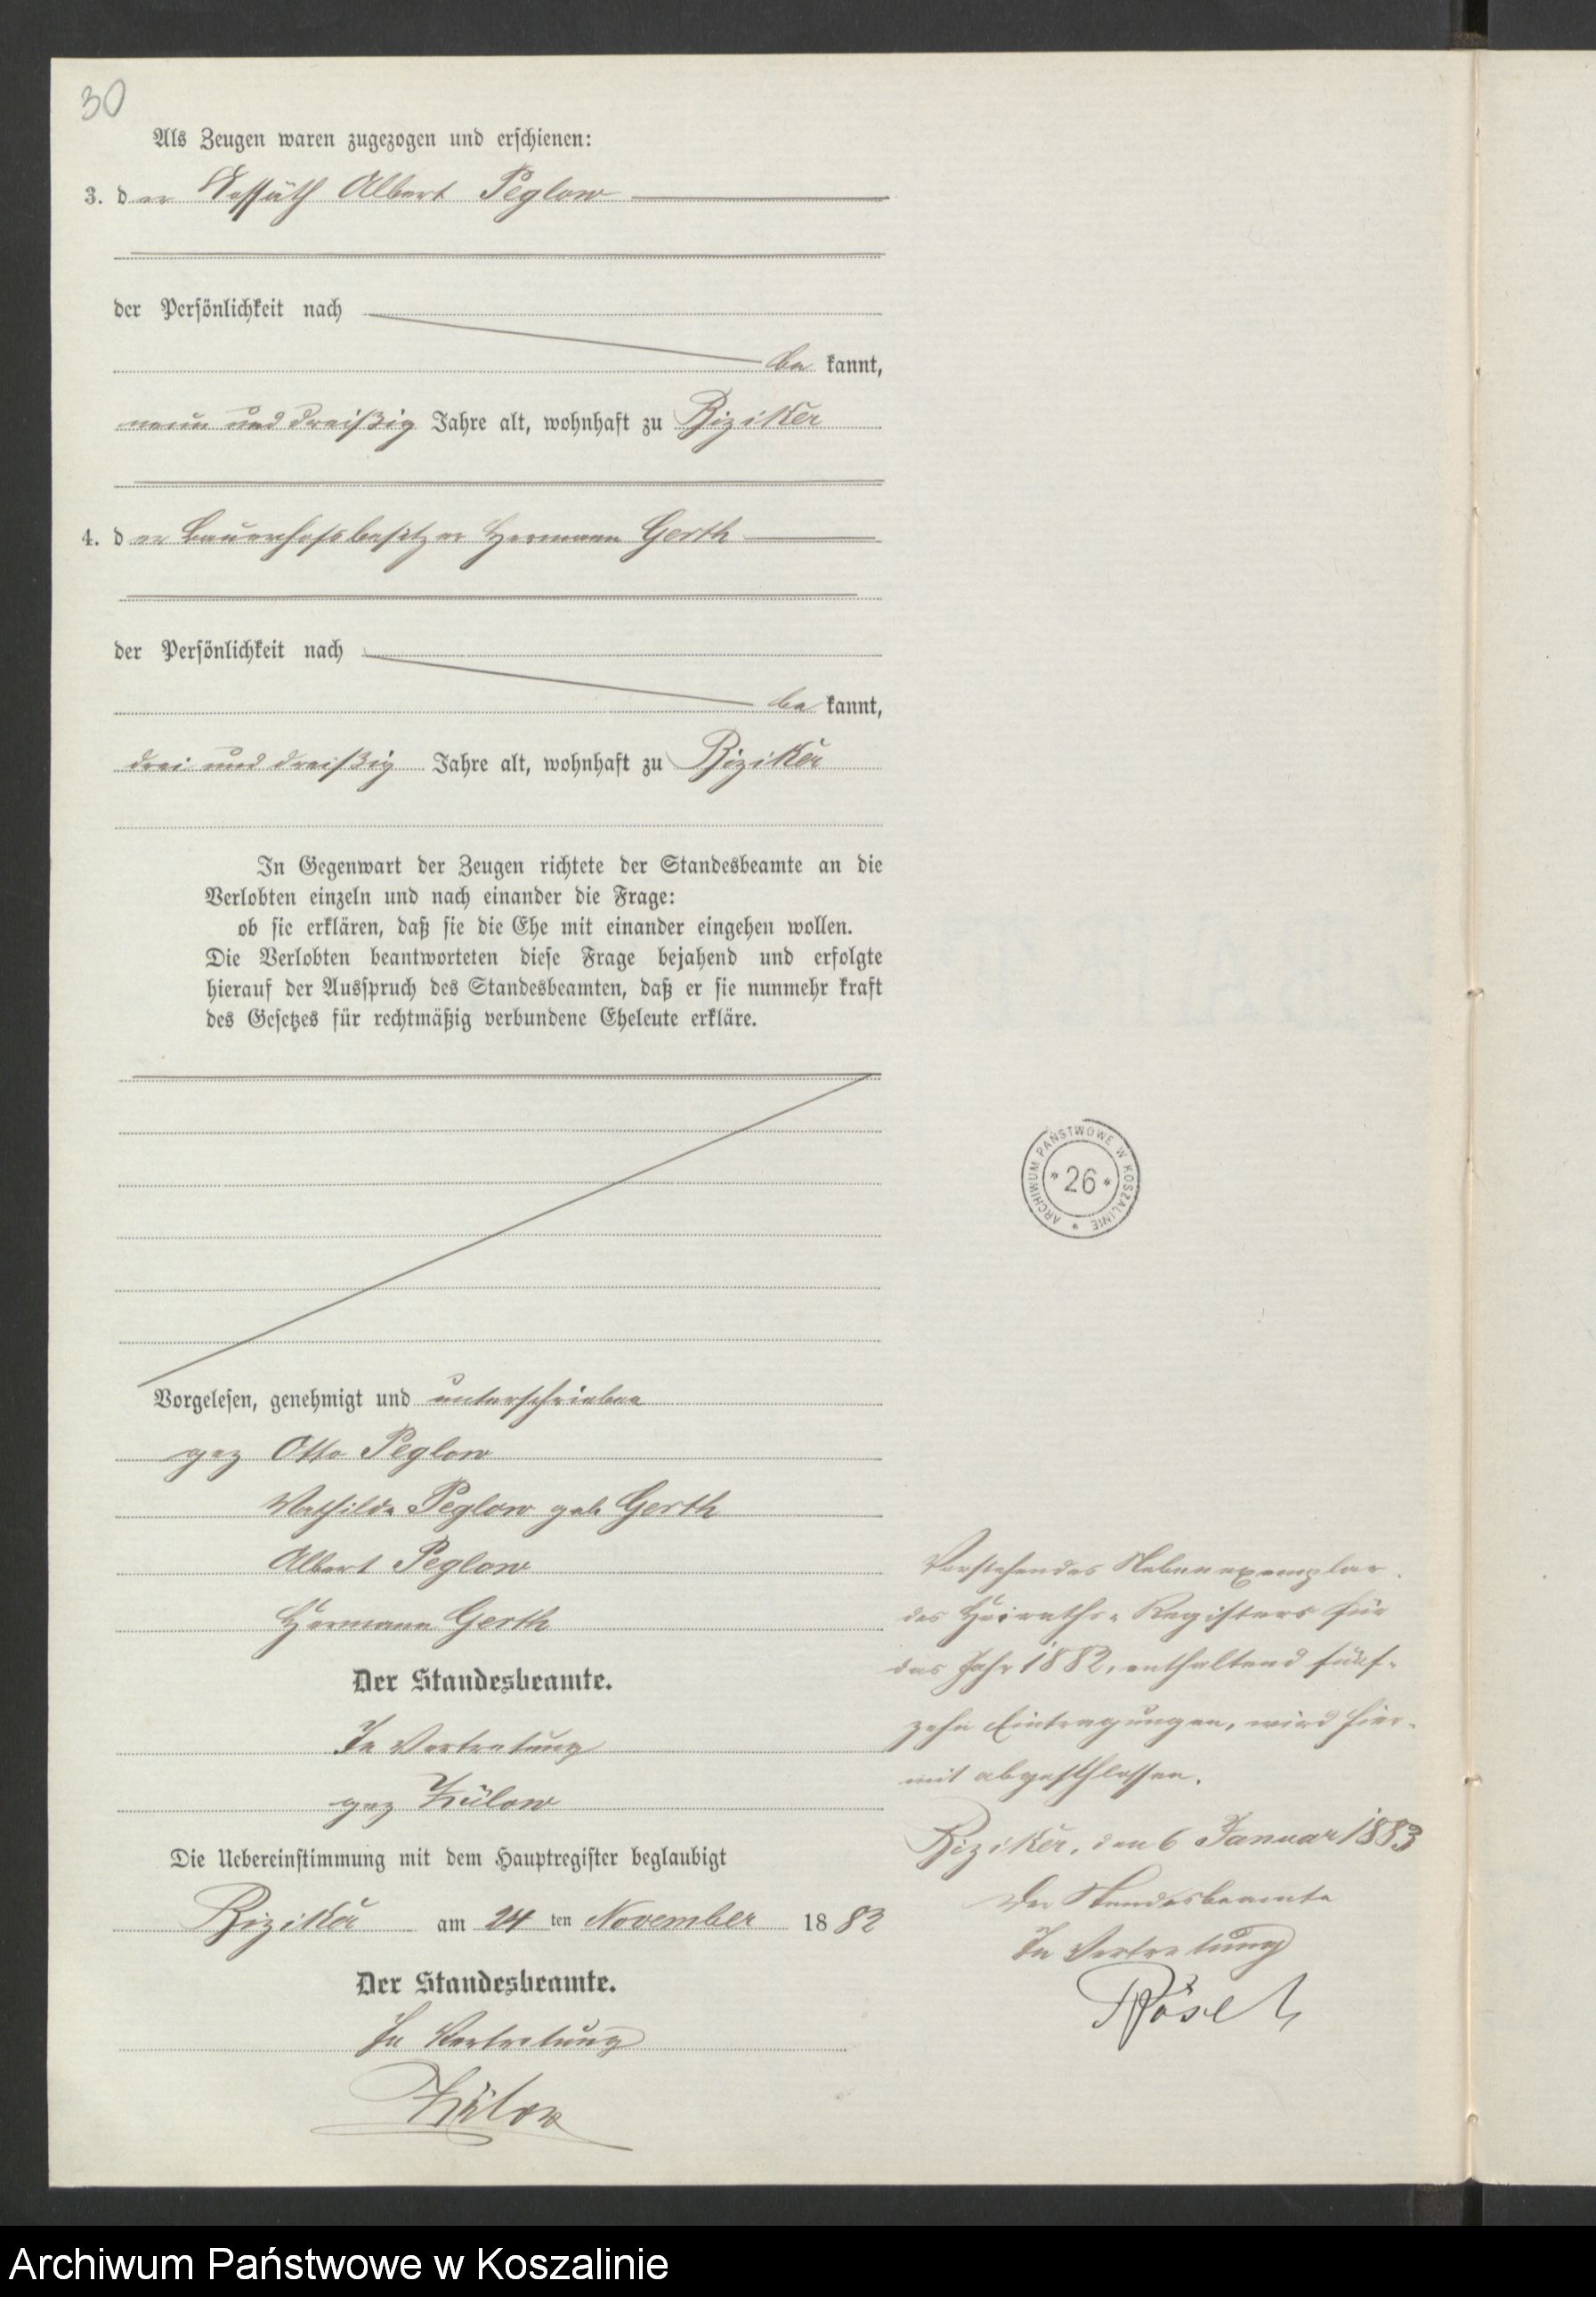 30
Als Zeugen waren zugezogen und erschienen:
3. der Kossäth Albert Peglow
der Persönlichkeit nach
be kannt,
neun und dreißig Jahre alt, wohnhaft zu Biziker
4. der Bauerhofsbesitzer Hermann Gerth
der Persönlichkeit nach
be kannt,
drei und dreißig Jahre alt, wohnhaft zu Biziker
In Gegenwart der Zeugen richtete der Standesbeamte an die
Verlobten einzeln und nach einander die Frage:
ob sie erklären, daß sie die Ehe mit einander eingehen wollen.
Die Verlobten beantworteten diese Frage bejahend und erfolgte
hierauf der Ausspruch des Standesbeamten, daß er sie nunmehr kraft
des Gesetzes für rechtmäßig verbundene Eheleute erkläre.
Vorgelesen, genehmigt und unterschrieben
gez Otto Peglow
Mathilde Peglow geb Gerth
Albert Peglow
Hermann Gerth
Der Standesbeamte.
In Vertretung
gez Zülow
Die Uebereinstimmung mit dem Hauptregister beglaubigt
Biziker am 24 ten November 1882
Der Standesbeamte.
In Vertretung
Zülow
ARCHIWUM PAŃSTWOWE W KOSZALINIE
* 26 *
Vorstehendes Nebenexemplar
des Heiraths-Registers für
das Jahr 1882, enthaltend fünf-
zehn Eintragungen, wird hier-
mit abgeschlossen.
Biziker, den 6 Januar 1883
Der Standesbeamte
In Vertretung
Archiwum Państwowe w Koszalinie